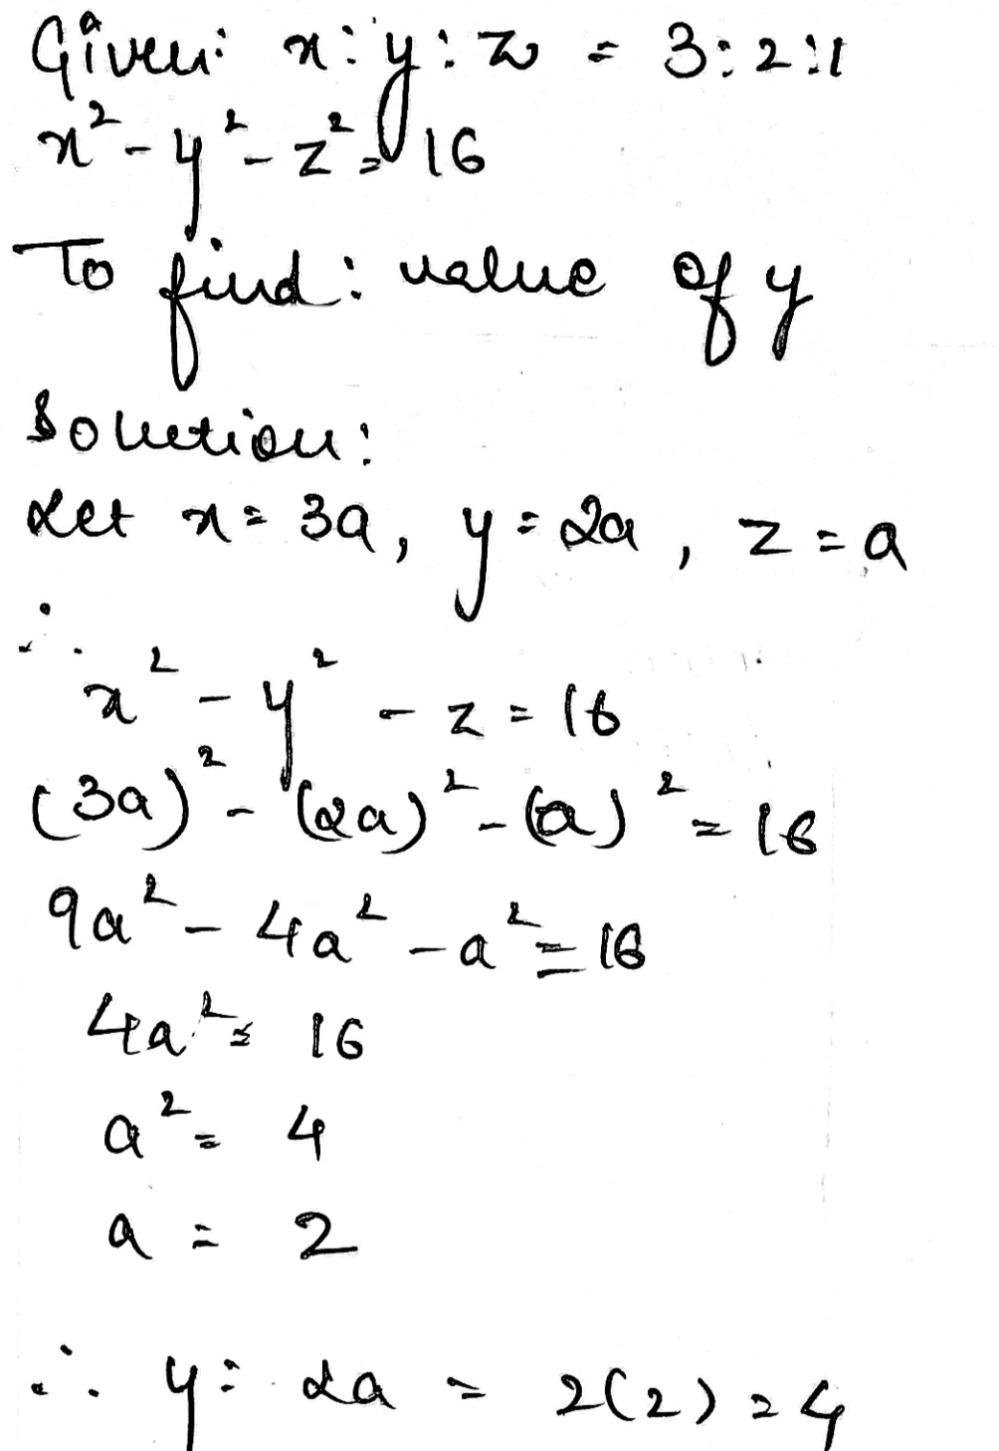 Given: x:y:z = 3:2:1
x² - y² - z² = 16
To find: value of y
Solution:
Let x = 3a, y = 2a, z = a
∴
x² - y² - z = 16
(3a)² - (2a)² - (a)² = 16
9a² - 4a² - a² = 16
4a² = 16
a² = 4
a = 2
∴ y = 2a = 2(2) = 4